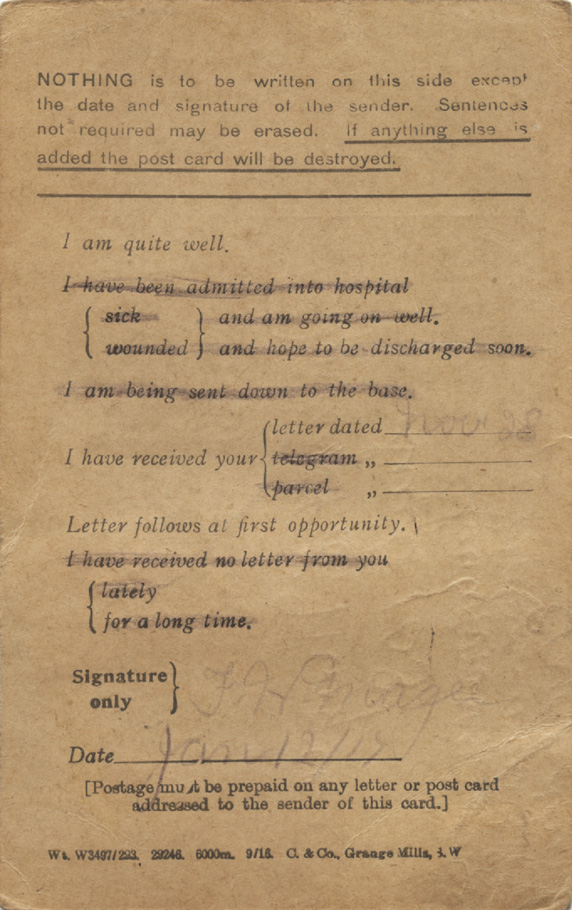 NOTHING is to be written on this side except
the date and signature of the sender. Sentences
not required may be erased. If anything else is
added the post card will be destroyed.
I am quite well.
I have been admitted into hospital
sick and am going on well.
wounded and hope to be discharged soon.
I am being sent down to the base.
letter dated Nov 28
I have received your telegram „
parcel „
Letter follows at first opportunity.
I have received no letter from you
lately
for a long time.
Signature
only
F W
Date Jan 12/17
[Postage must be prepaid on any letter or post card
addressed to the sender of this card.]
Wt. W3497/293. 29246. 6000m. 9/16. C. & Co., Grange Mills, S.W